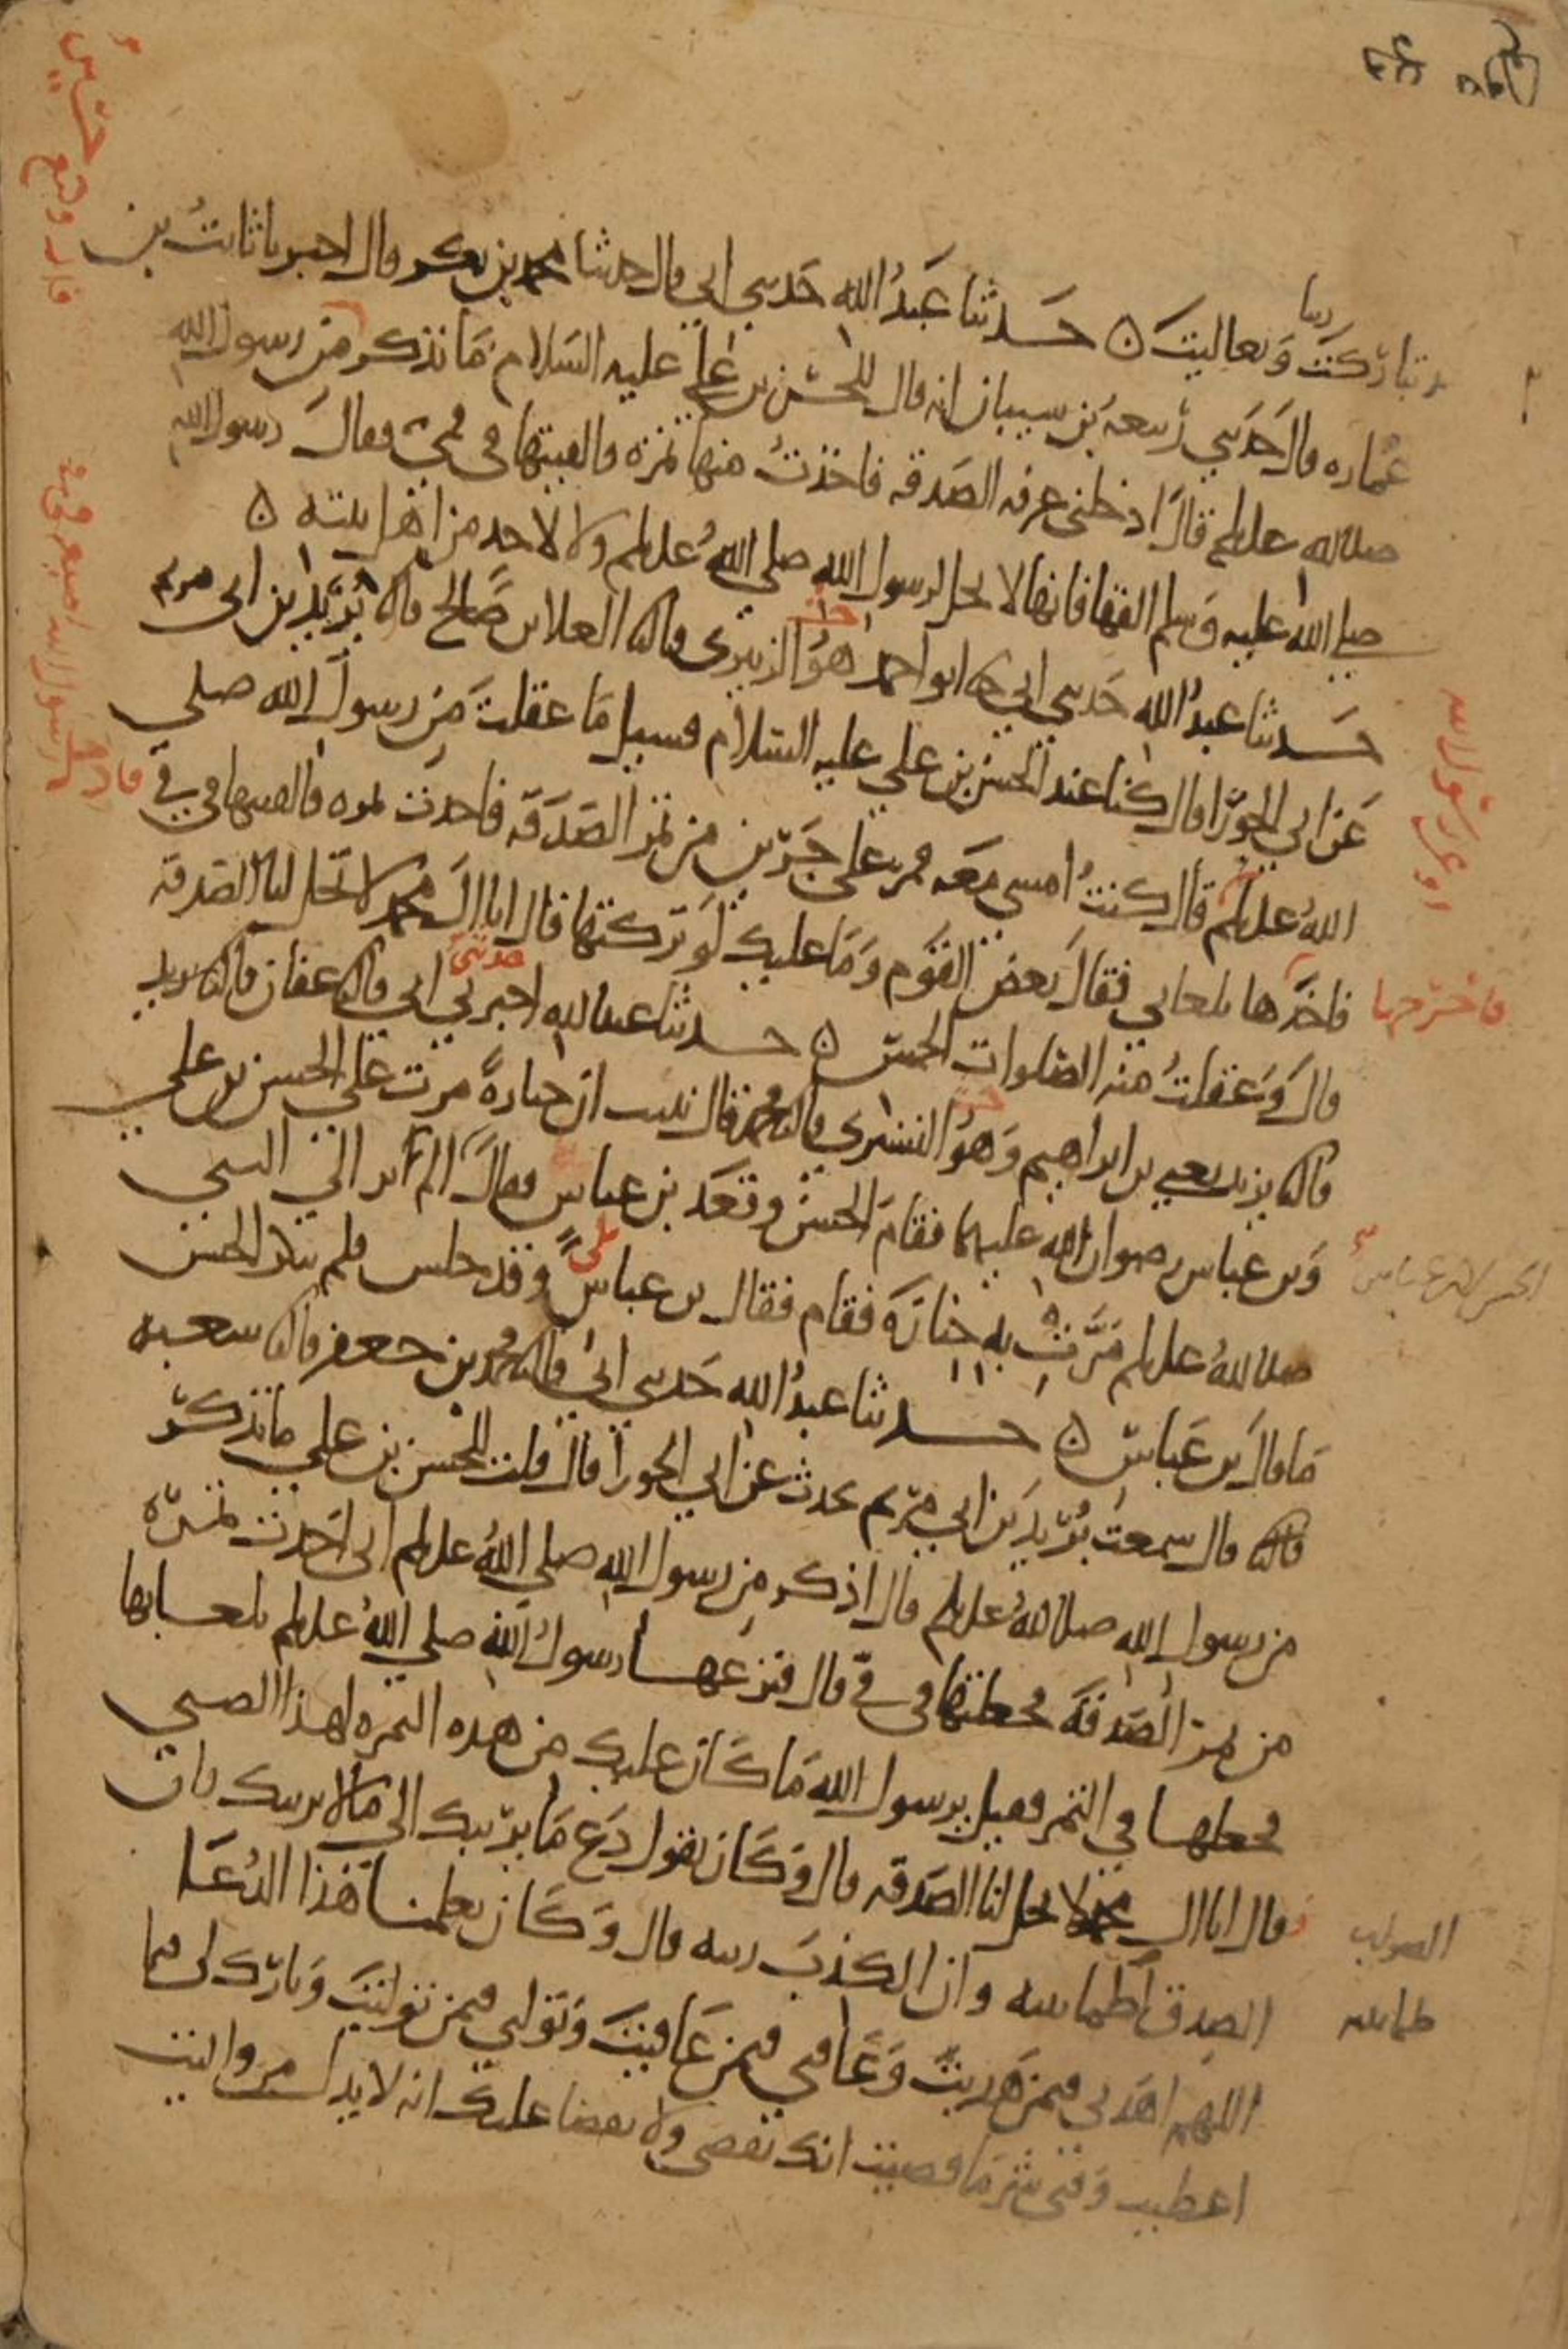 تباركت ربنا وتعاليت ه حدثنا عبد الله حدثني ابي قال حدثنا محمد بن بكر قال اخبرنا ثابت بن
عماره قال حدثني ربيعه بن شيبان انه قال للحسن بن علي عليه السلام ما تذكر من رسول الله
صلى الله عليه وسلم قال ادخلني غرفه الصدقه فاخذت منها تمره والقيتها في فمي فقال رسول الله
صلى الله عليه وسلم القها فانها لا تحل لرسول الله صلى الله عليه وسلم ولا لاحد من اهل بيته ه
حدثنا عبد الله حدثني ابي نا ابو احمد هو الزبيري قال نا العلا بن صالح قال نا بريد بن ابي مريم
عن ابي الحورا قال كنا عند الحسن بن علي عليه السلام فسيل ما عقلت من رسول الله صلى
الله عليه وسلم قال كنت امشي معه فمر على جرين من تمر الصدقه فاخذت تمره فالقيتها في في
فاخذها بلعابي فقال بعض القوم وما عليك لو تركتها فقال انا ال محمد لا تحل لنا الصدقه
قال وعقلت منه الصلوات الخمس ه حدثنا عبد الله اخبرني ابي قال نا عفان قال نا يزيد
قال نا يزيد يعني بن ابراهيم وهو التستري قال نا محمد قال نبيت ان جنازة مرت على الحسن بن علي
وبن عباس رضوان الله عليهما فقام الحسن وقعد بن عباس فقال الم تر الى النبي
صلى الله عليه وسلم مرت به جنازه فقام فقال بن عباس بلى وقد جلس فلم ينكر الحسن
ما قال بن عباس ه حدثنا عبد الله حدثني ابي قال نا محمد بن جعفر قال نا شعبه
قال نا قال سمعت بريد بن ابي مريم يحدث عن ابي الحورا قال قلت للحسن بن علي ما تذكر
من رسول الله صلى الله عليه وسلم قال اذكر من رسول الله صلى الله عليه وسلم اني اخذت تمره
من تمر الصدقه فجعلتها في في قال فنزعها رسول الله صلى الله عليه وسلم بلعابها
فجعلها في التمر فقيل يرسول الله ما كان عليك من هذه التمره لهذا الصبي
قال انا ال محمد لا تحل لنا الصدقه قال وكان يقول دع ما يريبك الى ما لا يريبك فان
الصدق اطمانينه وان الكذب ريبه قال وكان يعلمنا هذا الدعا
اللهم اهدني فيمن هديت وعافني فيمن عافيت وتولني فيمن توليت وبارك لي فيما
اعطيت وقني شر ما قضيت انك تقضي ولا يقضا عليك انه لا يذل من واليت
فاخرجها
حدثني
الحسن لابن عباس
الصواب
طمانينه